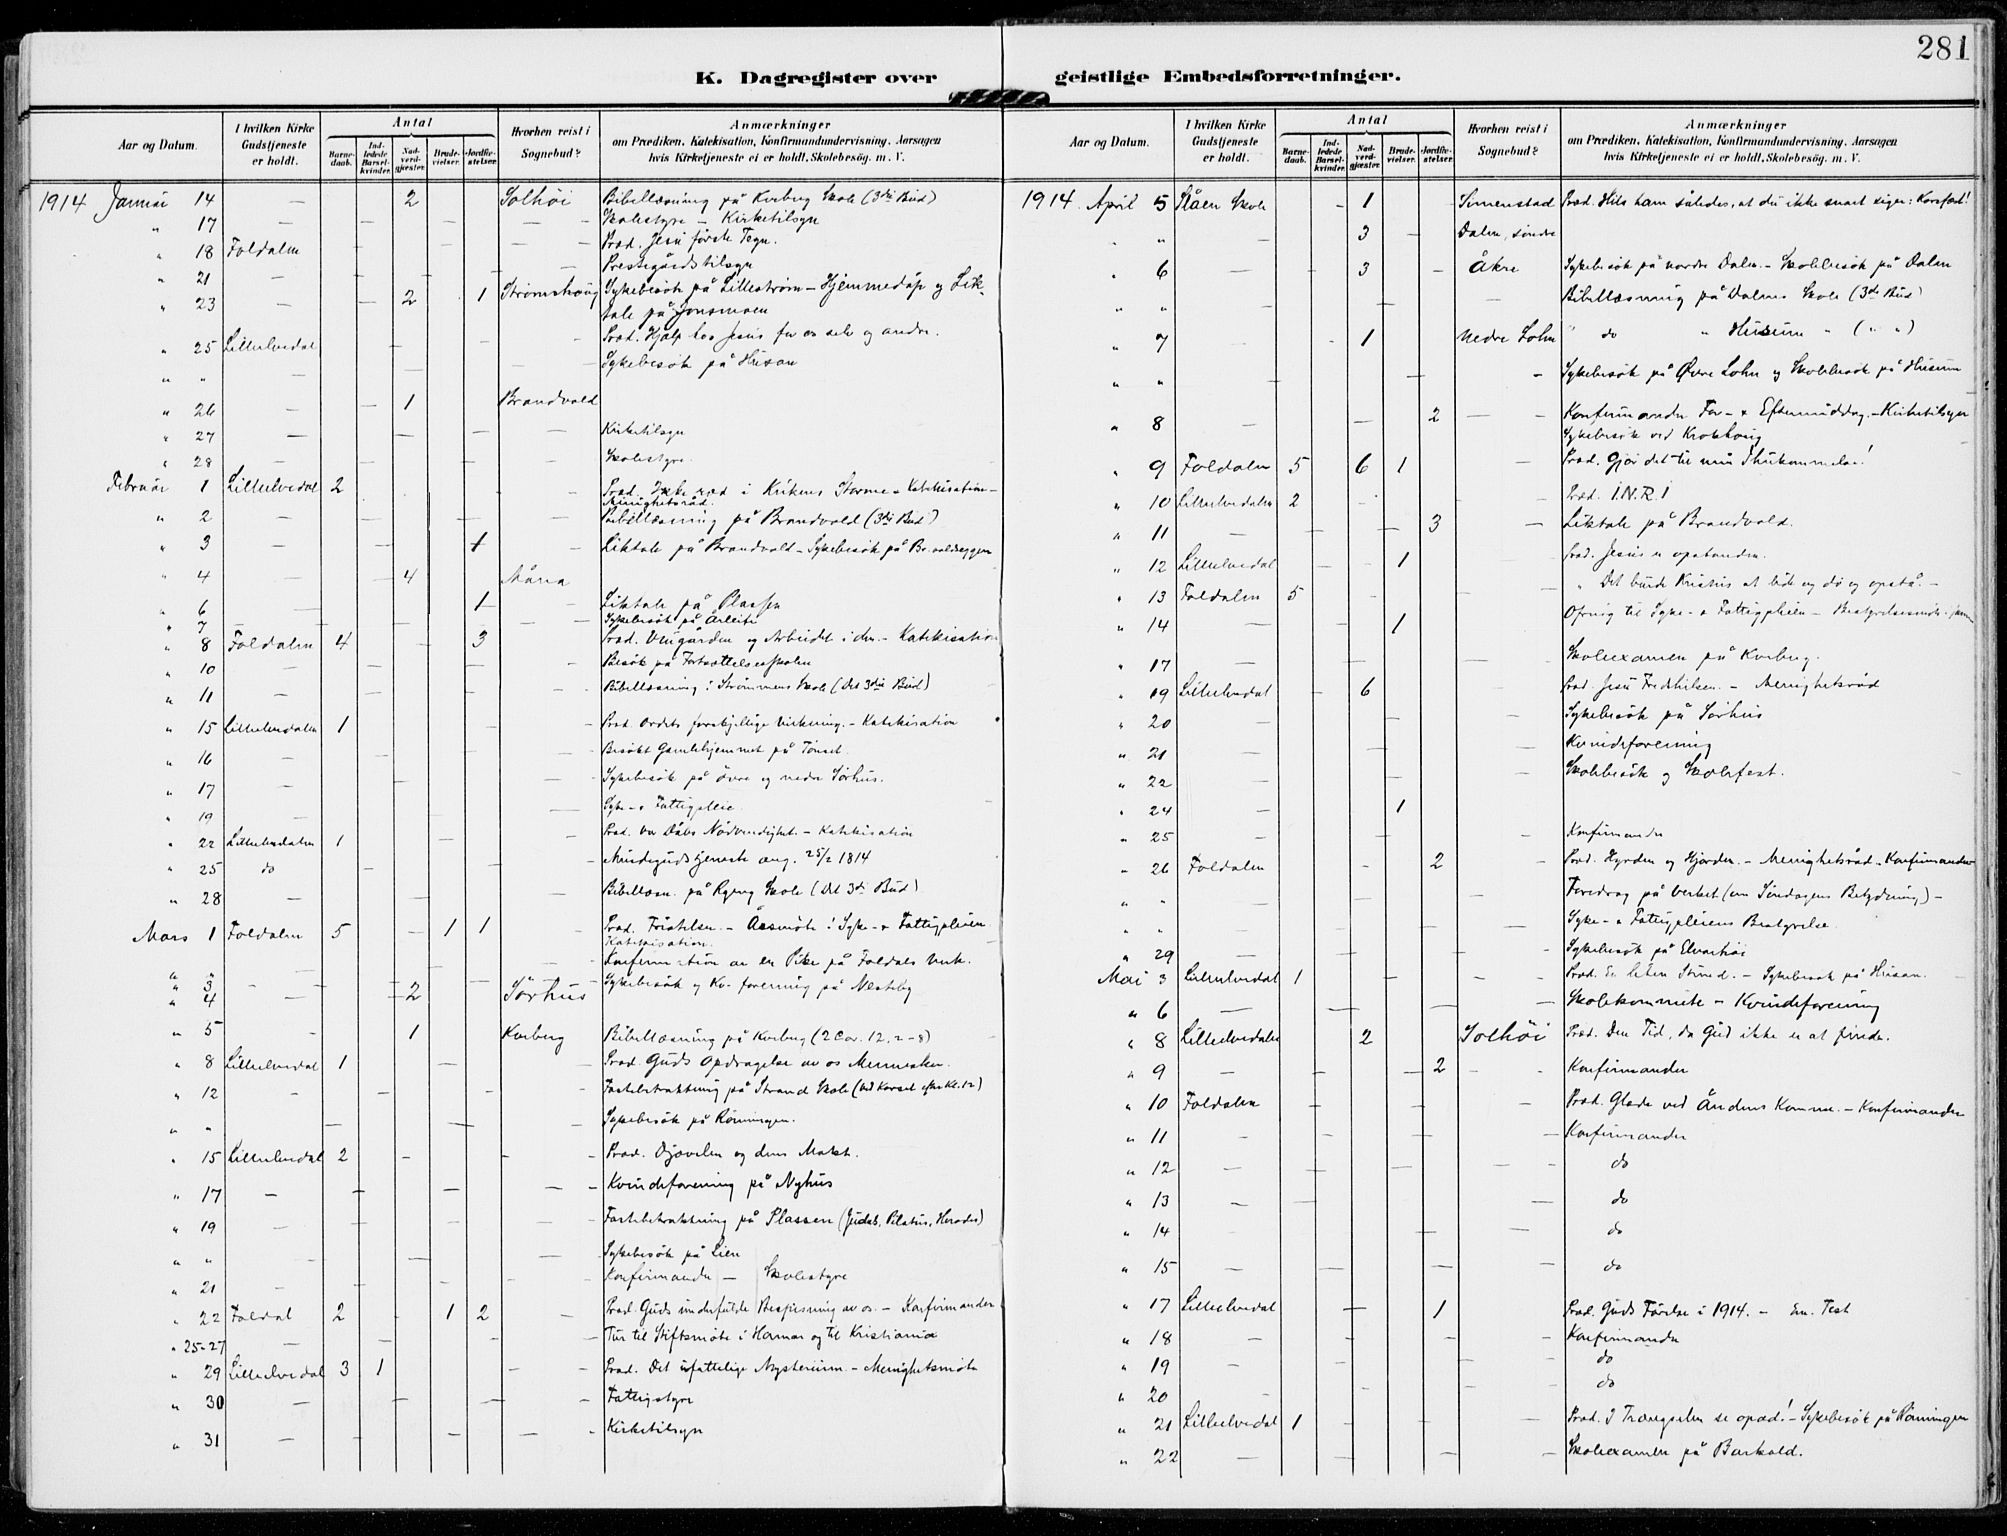 281
K. Dagregister over geistlige Embedsforretninger.
Aar og Datum. I hvilken Kirke Gudstjeneste er holdt. Antal Barnedaab. Indledede Barselkvinder. Nadverdgjæster. Brudevielser. Jordfæstelser. Hvorhen reist i Sognebud? Anmærkninger om Prædiken, Katekisation, Konfirmandundervisning, Aarsagen hvis Kirketjeneste ei er holdt, Skolebesög. m. V.
1914 Januar 14 — 2 Solhöi Bibellæsning på Korberg Skole (3die Bud)
" 17 — Skolestyre — Kirketilsyn
" 18 Foldalen Præd. Jesu første Tegn.
" 21 — Prestegårdstilsyn
" 23 — 2 1 Strömshaug Sykebesök på Lilleström — Hjemmedåp og Lik-
tale på Jonsmoen
" 25 Lilleelvedal Præd. Hjælp hos Jesus for os selv og andre.
" " — Sykebesök på Husan
" 26 — 1 Brandvold
" 27 — Kirketilsyn
" 28 — Skolestyre.
Februar 1 Lilleelvedal 2 Præd. Ikke ræd i Kirkens Storme — Katekisation —
Menighetsråd.
" 2 — Bibellæsning på Brandvold (3die Bud)
" 3 — 1 Liktale på Brandvold — Sykebesök på
" 4 — 4
" 6 — 1 Liktale på Plassen
" 7 — Sykebesök på
" 8 Foldalen 4 3 Præd. Vingården og Arbeidet i den. — Katekisation
" 10 — Besök på Fortsættelsesskolen
" 11 — Bibellæsning i Strömmens Skole (Det 3die Bud)
" 15 Lilleelvedalen 1 Præd. Ordets forskjellige Virkning. — Katekisation
" 16 — Besökt Gamlehjemmet på Tönset.
" 17 — Sykebesök på övre og nedre Sörhus.
" 19 — Syke- & Fattigpleie
" 22 Lilleelvedalen 1 Præd. Vor Dåbs Nödvendighet. — Katekisation
" 25 do Mindegudstjeneste ang. 25/2 1814
" 28 — Bibellæsn. på Ryeng Skole (Det 3die Bud)
Mars 1 Foldalen 5 1 1 Præd. Fristelsen. — Årsmöte i Syke- & Fattigpleien
Katekisation.
" " Konfirmation av en Pike på Foldals Verk.
" 3 — Sykebesök og Kv. forening på Nesteby
" 4 — 2 Sörhus
" 5 — 1 Korberg Bibellæsning på Korberg (2 Cor. 12, 2-8)
" 8 Lilleelvedal 1 Præd. Guds Opdragelse av os Mennesker.
" 12 — Fastebetraktning på Strand Skole (Ved Korset efter Kl. 12)
" " — Sykebesök på Röningen.
" 15 Lilleelvedal 2 Præd. Djævelen og dens Makt.
" 17 — Kvindeforening på Nyhus
" 19 — Fastebetraktning på Plassen (Judas, Pilatus, Herodes)
" " — Sykebesök på Lien
" 21 — Konfirmander — Skolestyre
" 22 Foldal 2 1 2 Præd. Guds underfulde Bespisning av os. — Konfirmander
" 25-27 Tur til Stiftsmöte i Hamar og til Kristiania
" 29 Lilleelvedal 3 1 Præd. Det ufattelige Mysterium — Menighetsmöte
" 30 — Fattigstyre
" 31 — Kirketilsyn
Aar og Datum. I hvilken Kirke Gudstjeneste er holdt. Antal Barnedaab. Indledede Barselkvinder. Nadverdgjæster. Brudevielser. Jordfæstelser. Hvorhen reist i Sognebud? Anmærkninger om Prædiken, Katekisation, Konfirmandundervisning, Aarsagen hvis Kirketjeneste ei er holdt, Skolebesög. m. V.
1914 April 5 Slåen Skole 1 Simenstad Præd. Hils ham således, at du ikke snart siger: Korsfæst!
" " — 3 Dalen, söndre
" 6 — 3 Åkre Sykebesök på nordre Dalen — Skolebesök på Dalen
" " — Bibellæsning på Dalens Skole (3die Bud)
" 7 — 1 Nedre Lohn " do " Husum " (" ")
" " — Sykebesök på Övre Lohn og Skolebesök på Husum
" 8 — 2 Konfirmander For- & Eftermiddag. — Kirketilsyn
Sykebesök ved Krokhaug
" 9 Foldalen 5 6 1 Præd. Gjör det til min Ihukommelse!
" 10 Lilleelvedalen 2 Præd. I.N.R.I
" 11 — 3 Liktale på Brandvold.
" 12 Lilleelvedal 1 Præd. Jesus er opstanden.
" 13 Foldalen 5 " Det burde Kristus at lide og dö og opstå. —
" 14 — 1 Ofring til Syke- & Fattigpleien — Bestyrelsesmöte
" 17 — Skoleexamen på Korberg.
" 19 Lilleelvedal 6 Præd. Jesu Fredhilsen. — Menighetsråd
" 20 — Sykebesök på Sörhus
" 21 — Kvindeforening
" 22 — Skolebesök og Skolefest.
" 24 — 1
" 25 — Konfirmander
" 26 Foldalen 2 Præd. Hyrden og Hjorden. — Menighetsråd — Konfirmander
" " — Foredrag på Verket (om Söndagens Betydning) —
" " Syke- & Fattigpleiens Bestyrelse.
" 29 — Sykebesök på Elvashöi
Mai 3 Lilleelvedal 1 Præd. En liten Stund. — Sykebesök på Husan.
" 6 — Skolekommite — Kvindeforening
" 8 Lilleelvedalen 2 Solhöi Præd. Den Tid, da Gud ikke er at finde.
" 9 — 2 Konfirmander
" 10 Foldalen Præd. Glæde ved Åndens Komme. — Konfirmander
" 11 — Konfirmander
" 12 — do
" 13 — do
" 14 — do
" 15 — do
" 17 Lilleelvedal 1 Præd. Guds Förelse i 1914. — En. Text
" 18 — Konfirmander
" 19 — do
" 20 — do
" 21 Lilleelvedal 1 Præd. I Trængselen se opad! — Sykebesök på Röningen
" 22 — Skoleexamen på Barkald.